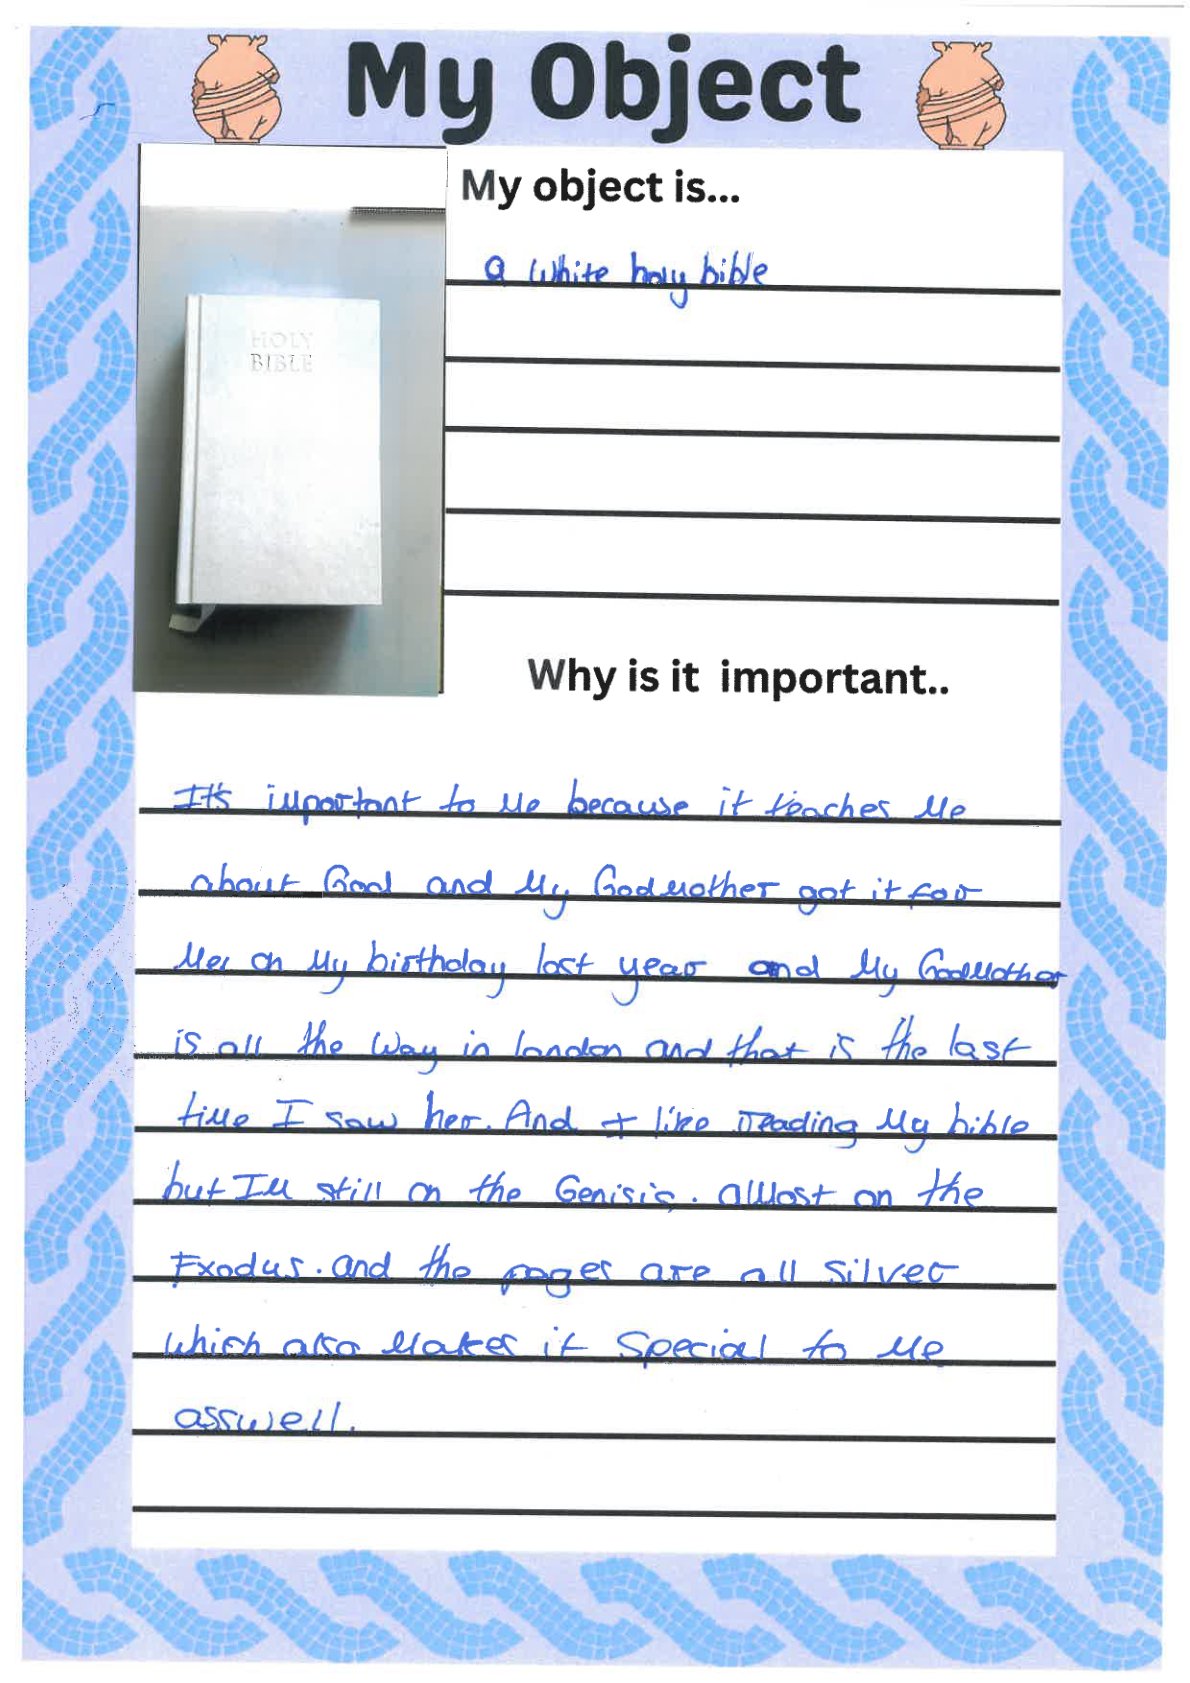 My Object
My object is...
a white holy bible
HOLY
BIBLE
Why is it important..
It's important to me because it teaches me
about God and My Godmother got it for
Me, on My birthday last year and My Godmother
is all the way in london and that is the last
time I saw her. And I like reading My bible
but I'm still on the Genisis. almost on the
Exodus. and the pages are all silver
which also makes it special to me
asswell.